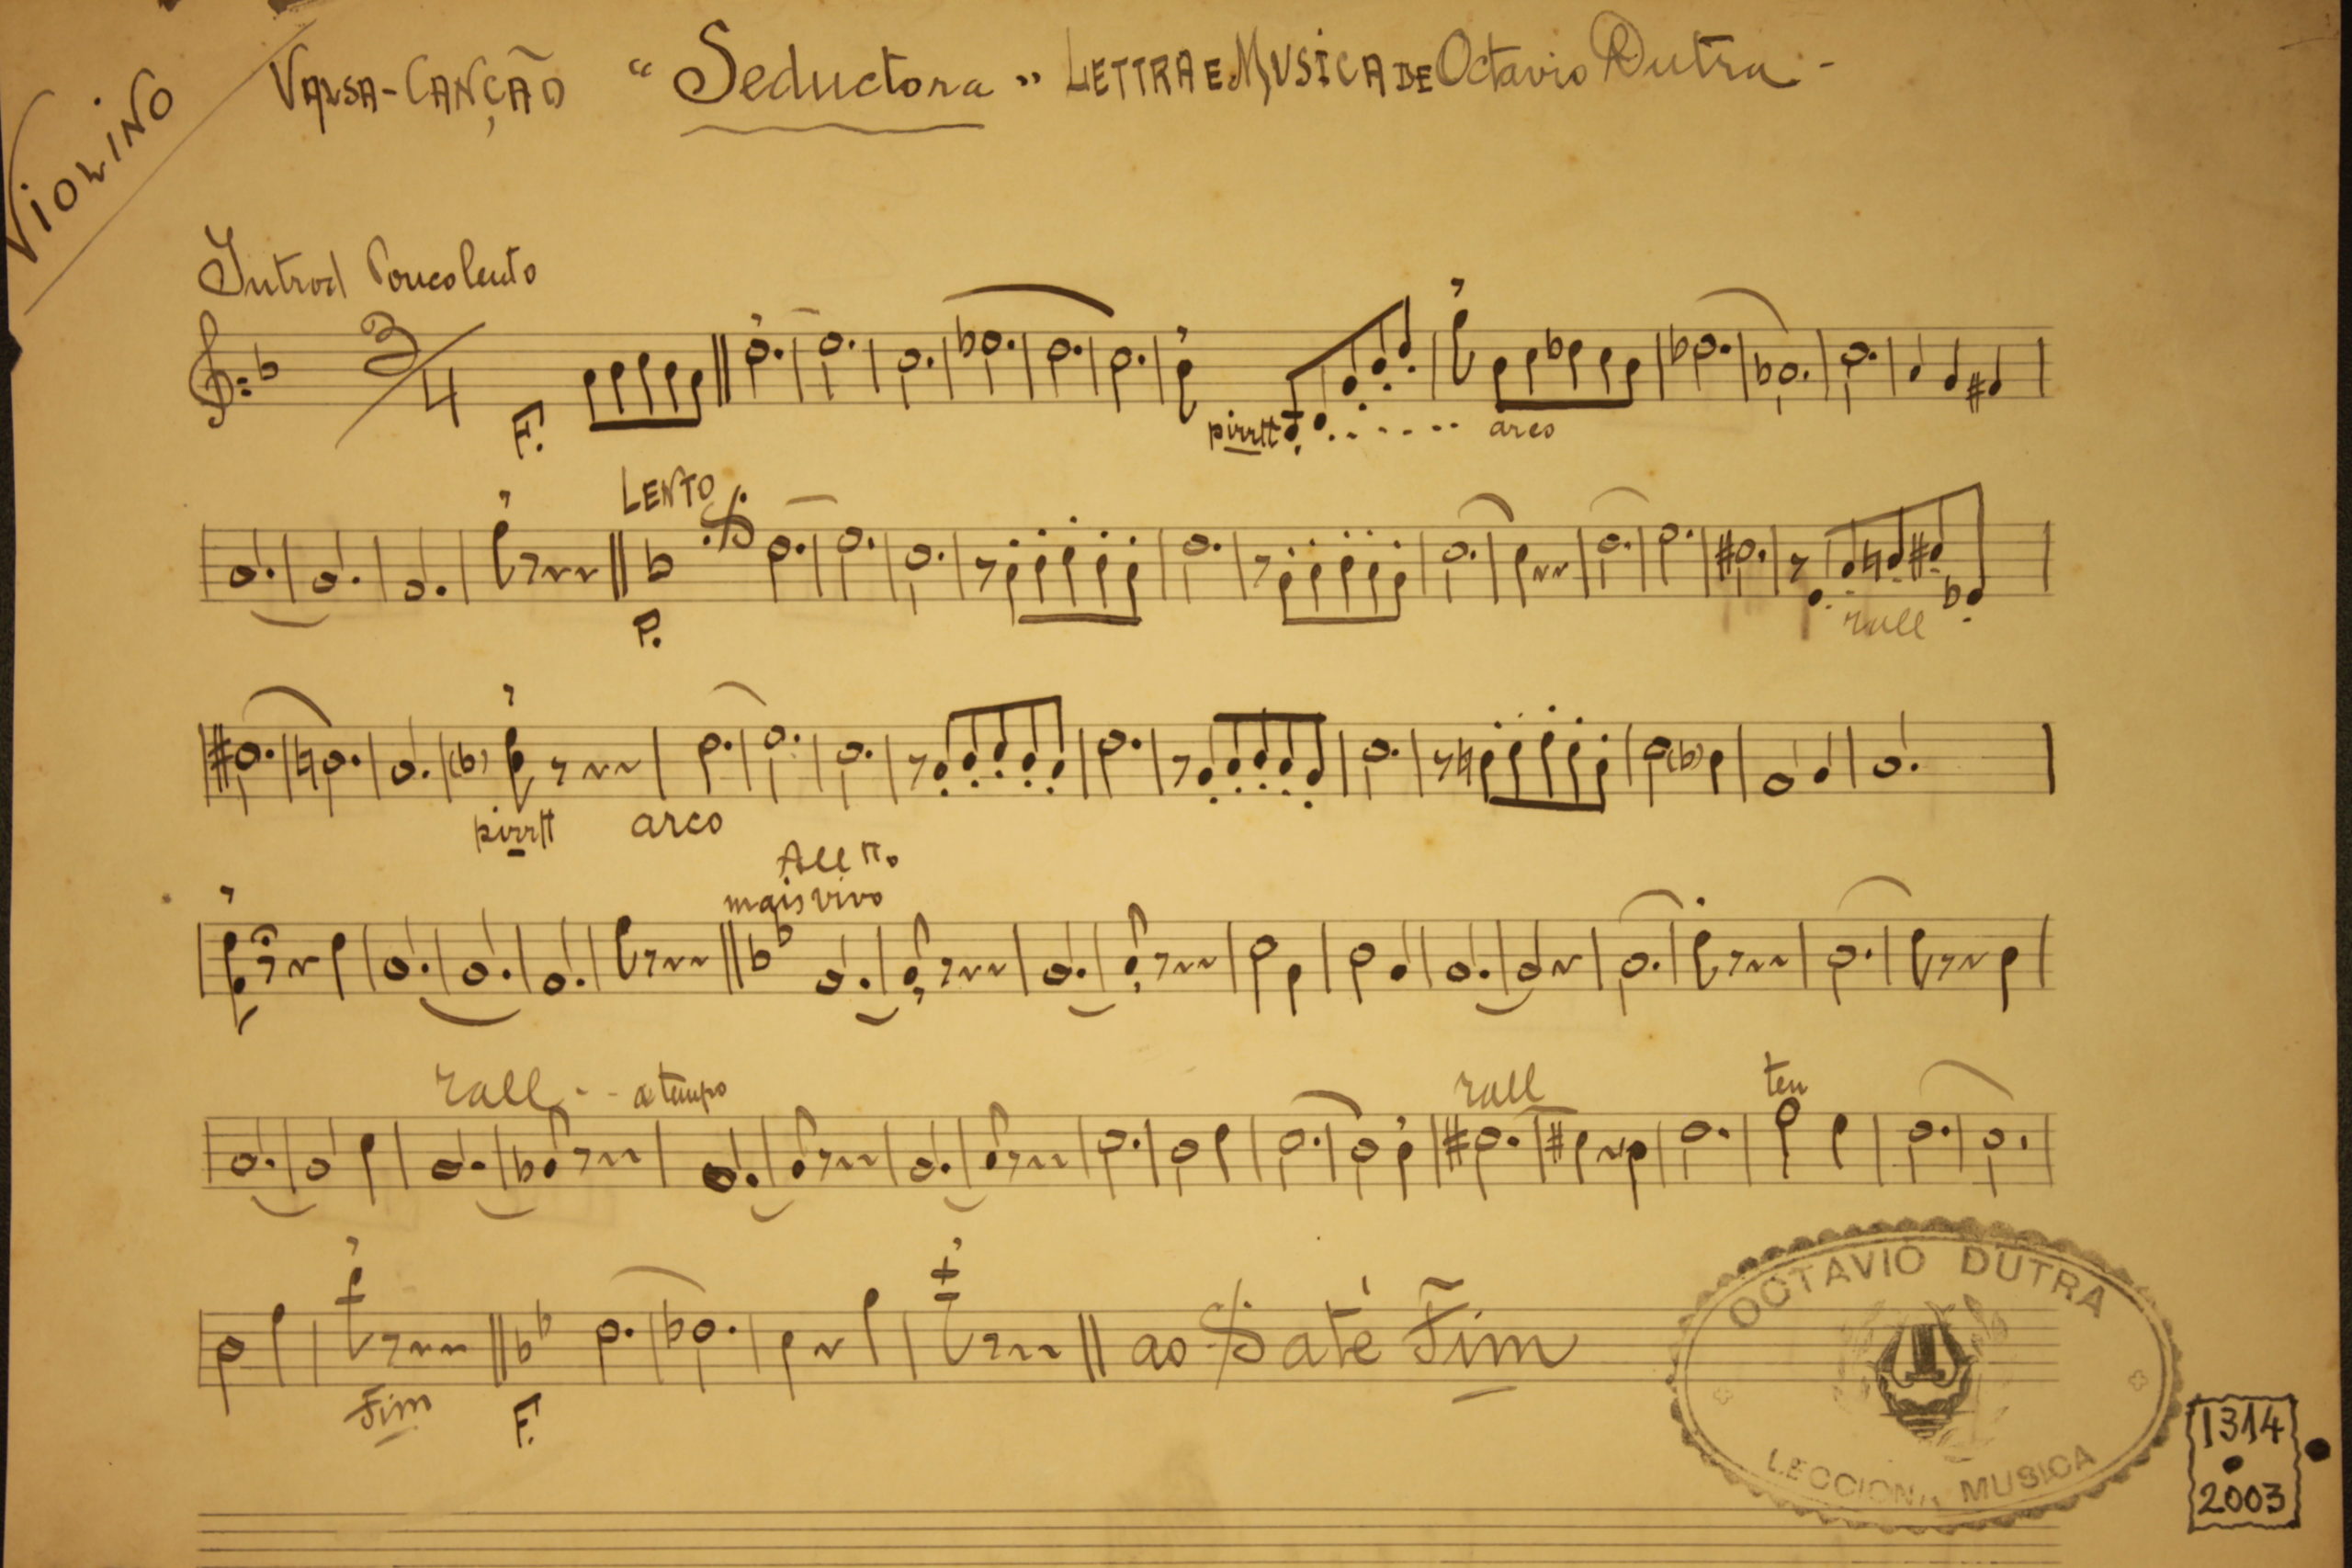 VIOLINO
VALSA-CANÇÃO "Seductora" LETTRA E MUSICA DE Octavio Dutra -
Introd Pouco lento
3/4
F.
pizztt
arco
LENTO
P.
rall
pizztt
arco
Alltto
mais vivo
rall - - a tempo
rall
ten
Fim
F.
ao até Fim
OCTAVIO DUTRA
LECCIONA MUSICA
1314
2003